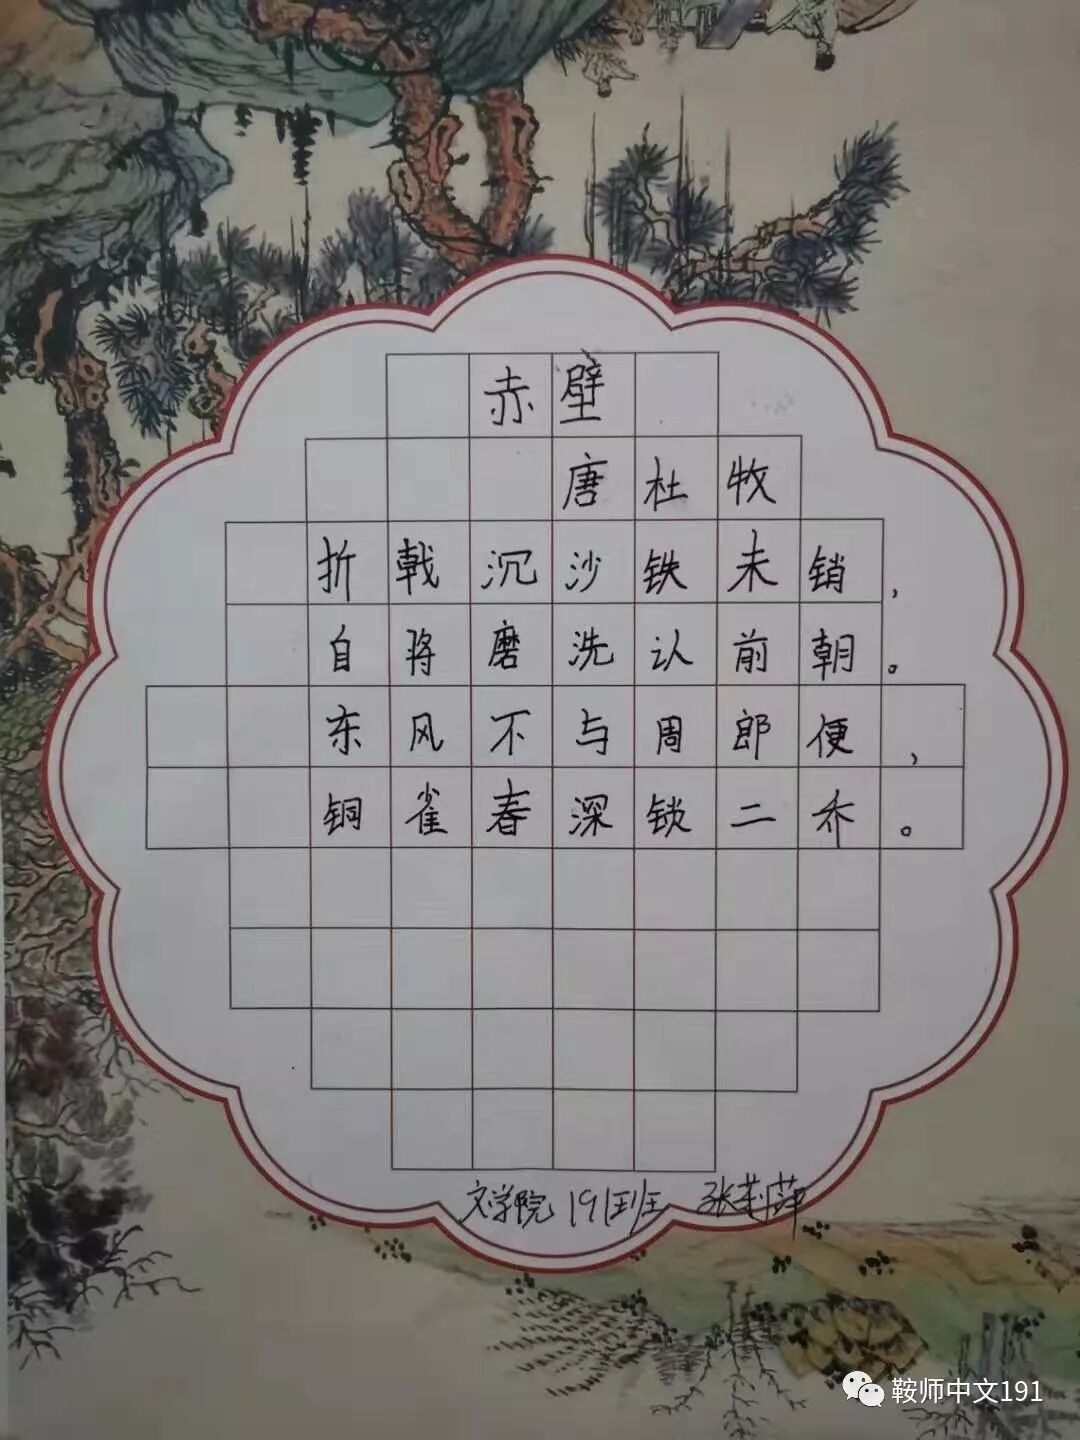 赤壁
唐杜牧
折戟沉沙铁未销，
自将磨洗认前朝。
东风不与周郎便，
铜雀春深锁二乔。
文学院 191班 张莉萍
鞍师中文191